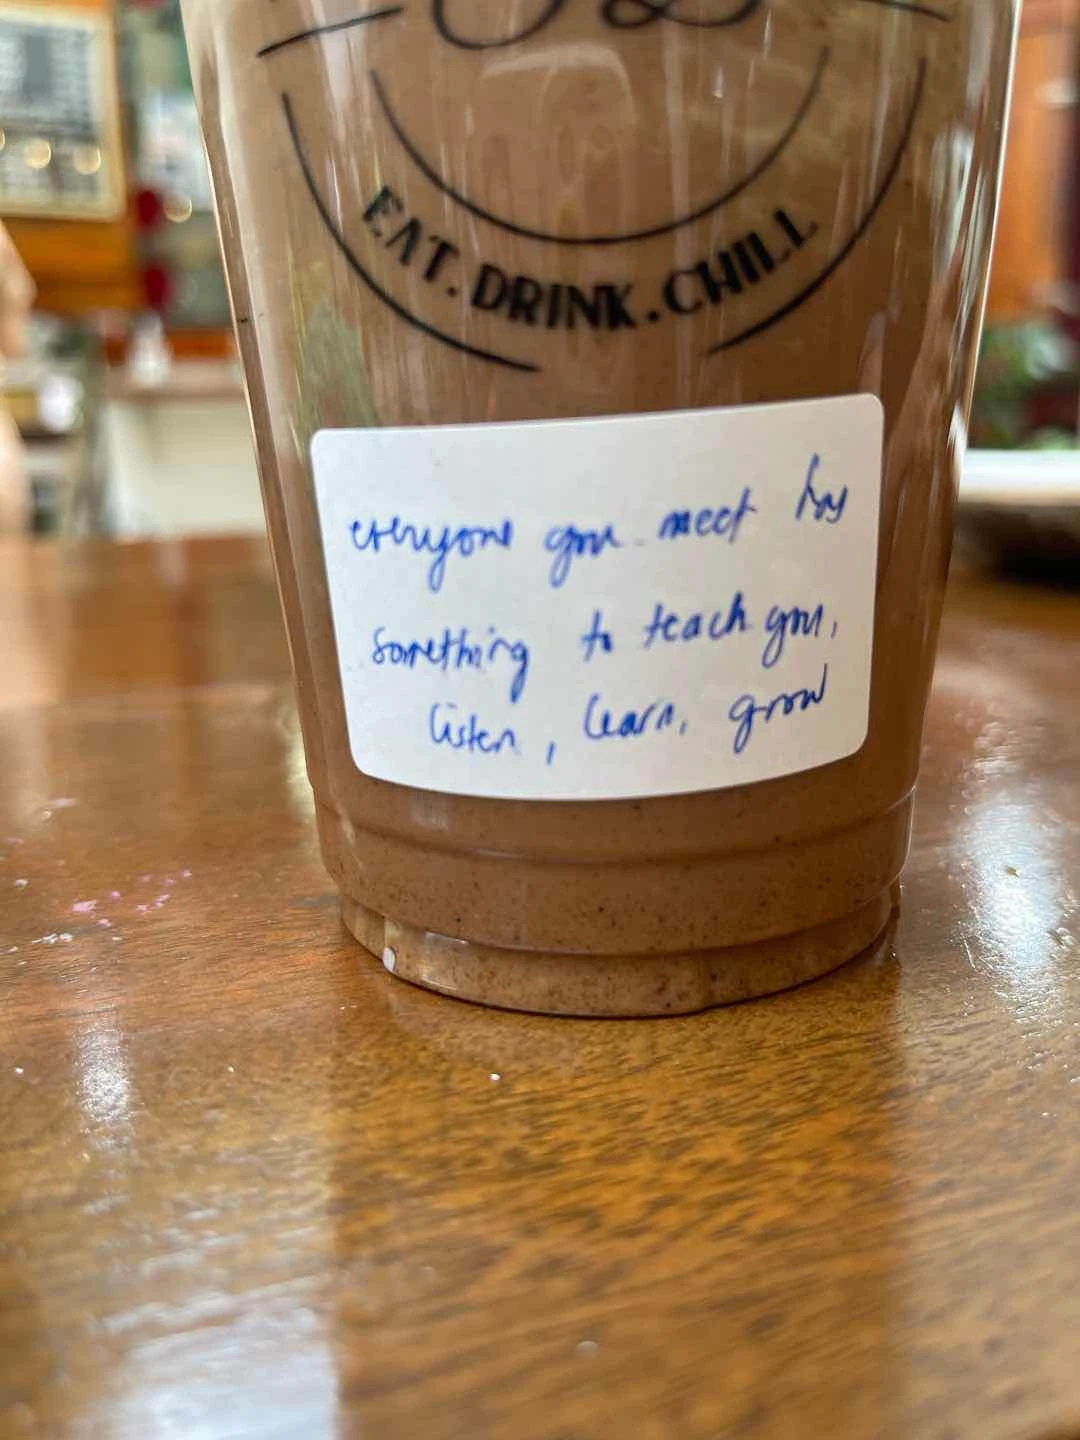 EAT. DRINK. CHILL
everyone you meet has
something to teach you,
listen, learn, grow